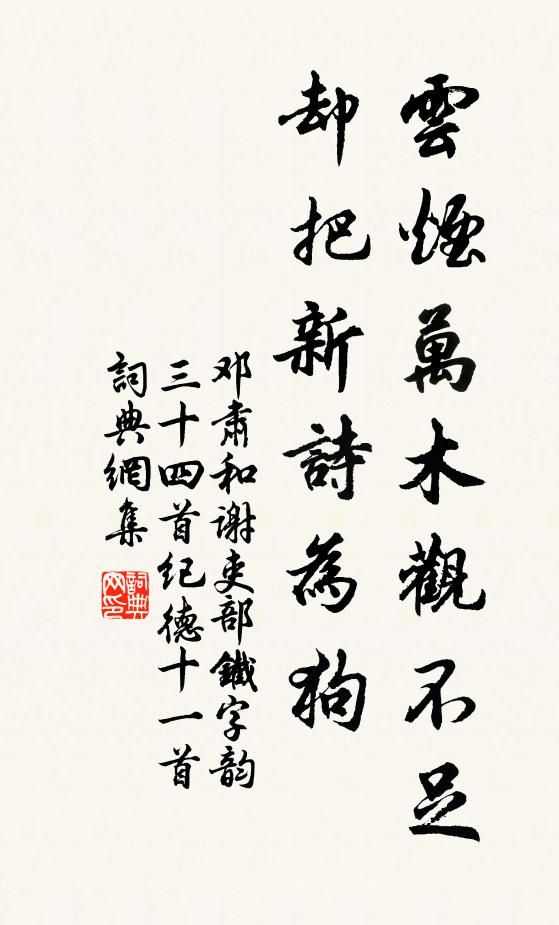 雲煙萬木觀不足
却把新詩為狗
邓肅和谢吏部鐵字韵
三十四首纪德十一首
詞典網集
詞典网印